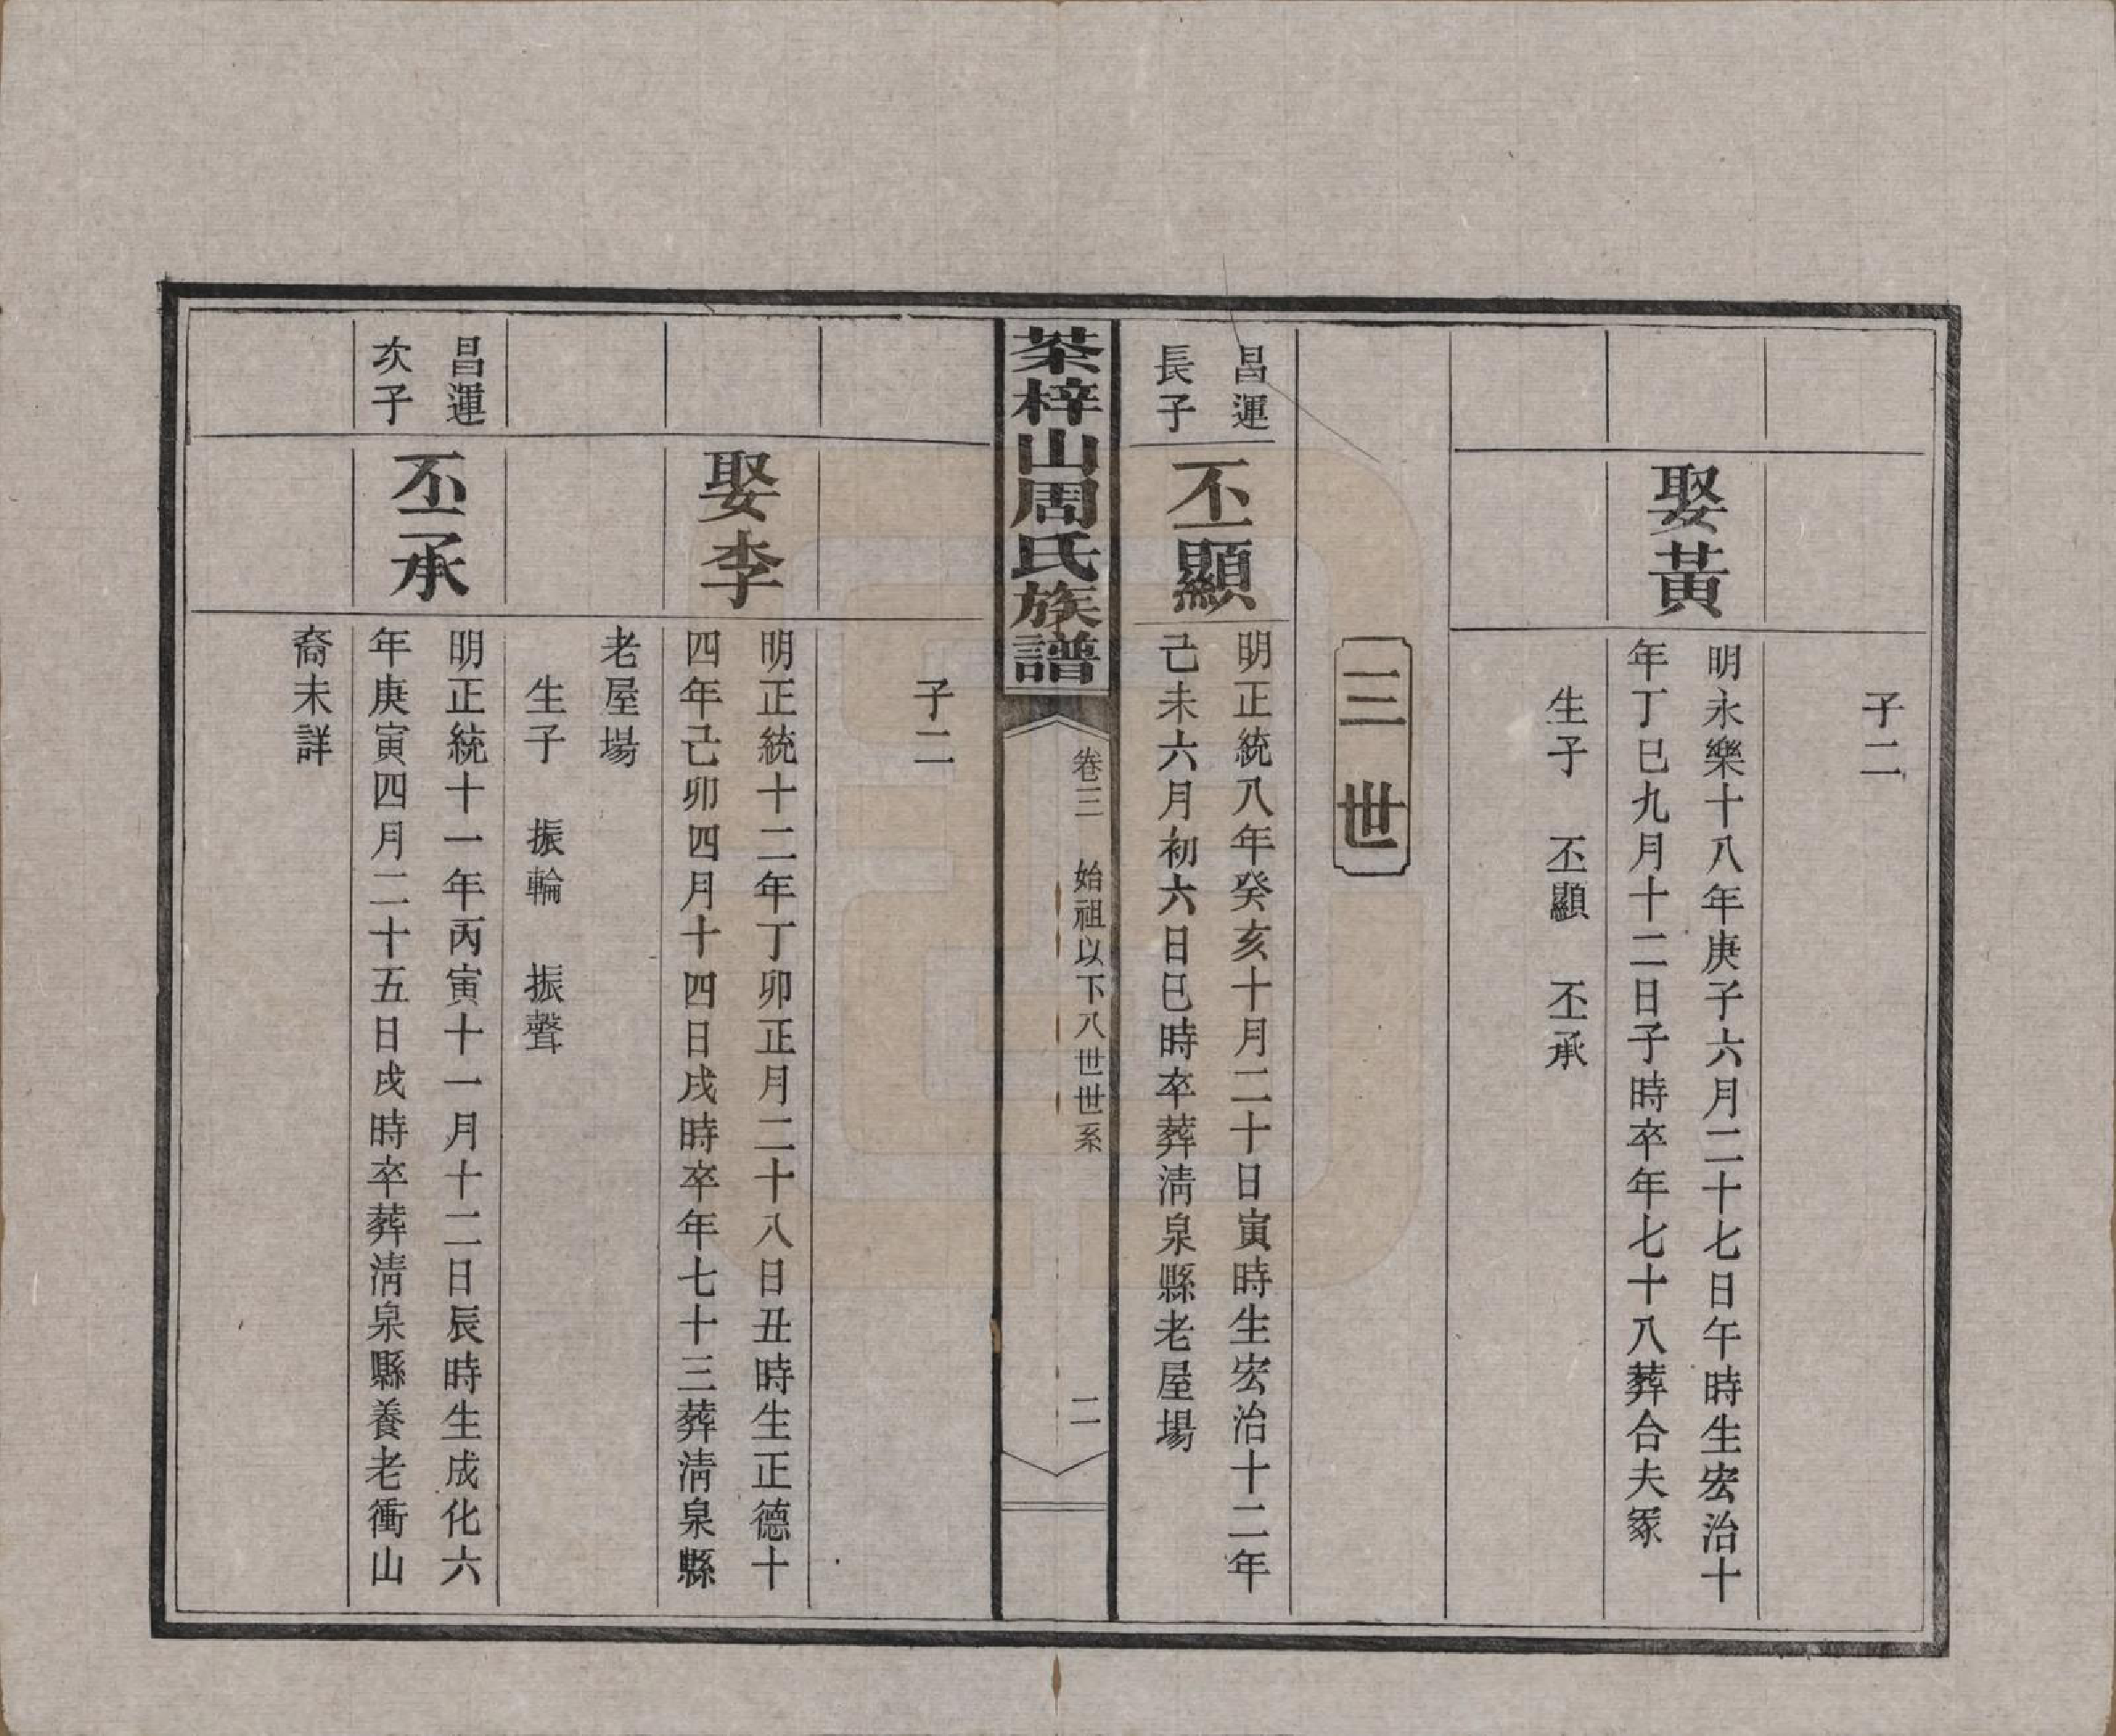 子二
娶黃
明永樂十八年庚子六月二十七日午時生宏治十
年丁巳九月十二日子時卒年七十八葬合夫冢
生子　丕顯　丕承
三世
昌運
長子
丕顯
明正統八年癸亥十月二十日寅時生宏治十二年
己未六月初六日巳時卒葬清泉縣老屋場
茶梓山周氏族譜
卷三　始祖以下八世世系
二
子二
娶李
明正統十二年丁卯正月二十八日丑時生正德十
四年己卯四月十四日戌時卒年七十三葬清泉縣
老屋場
生子　振輪　振聲
昌運
次子
丕承
明正統十一年丙寅十一月十二日辰時生成化六
年庚寅四月二十五日戌時卒葬清泉縣養老衝山
裔未詳